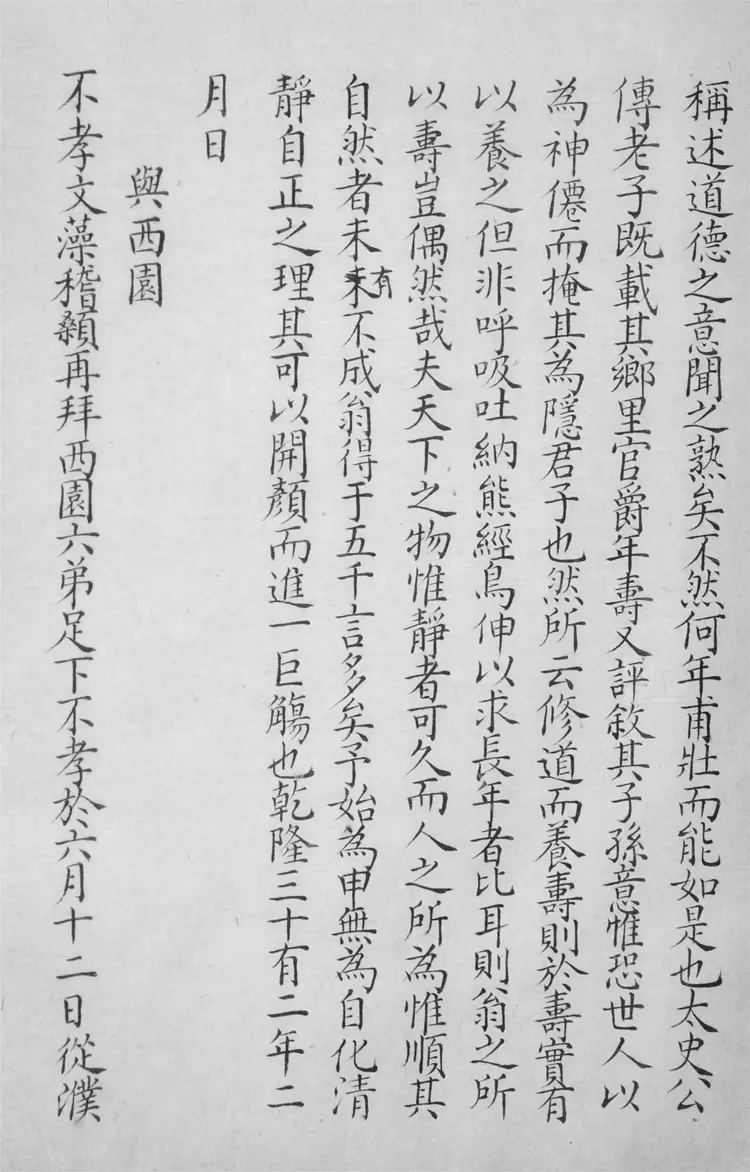 稱述道德之意聞之熟矣不然何年甫壯而能如是也太史公
傳老子既載其鄉里官爵年壽又評敘其子孫意惟恐世人以
為神僊而掩其為隱君子也然所云修道而養壽則於壽實有
以養之但非呼吸吐納熊經鳥伸以求長年者比耳則翁之所
以壽豈偶然哉夫天下之物惟靜者可久而人之所為惟順其
自然者未有不成翁得于五千言多矣予始為申無為自化清
靜自正之理其可以開顏而進一巨觴也乾隆三十有二年二
月日
與西園
不孝文藻稽顙再拜西園六弟足下不孝於六月十二日從濮